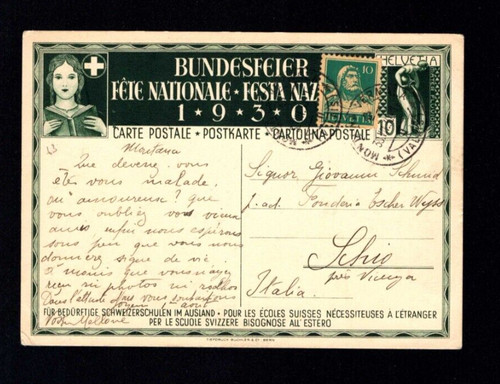 BUNDESFEIER
FÊTE NATIONALE • FESTA NAZ
1 • 9 • 3 • 0
10
HELVETIA
HELVETIA
10
CARTE POSTALE • POSTKARTE • CARTOLINA POSTALE
Montana
Que devenez vous
êtes vous malade
ou amoureuse? que
vous oubliez vos
amis enfin nous espérons
sous peu que vous nous
donnerez signe de vie.
à moins que vous n'ayez
reçu ni photos ni
Dans l'attente
1 août
Signor Giovanni Schmid
p. ad. Fonderia Escher Wyss
Schio
près Vicenza
Italia.
FÜR BEDÜRFTIGE SCHWEIZERSCHULEN IM AUSLAND • POUR LES ÉCOLES SUISSES NÉCESSITEUSES À L'ÉTRANGER
PER LE SCUOLE SVIZZERE BISOGNOSE ALL'ESTERO